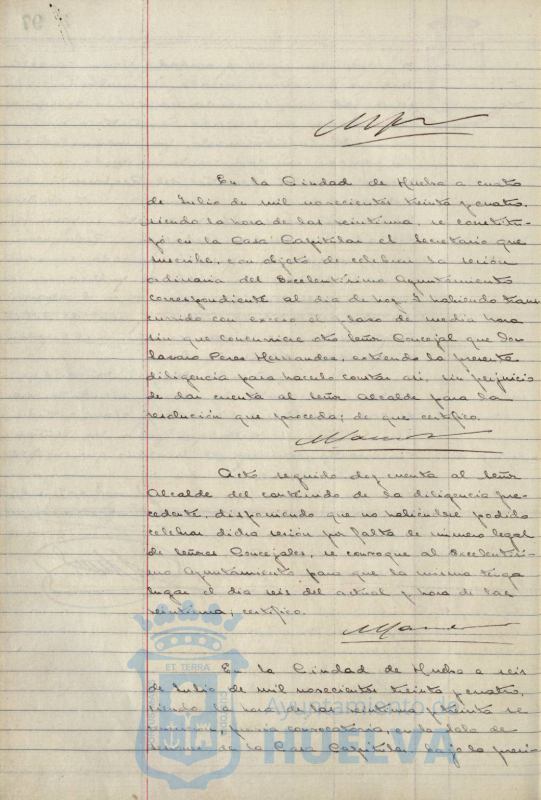 En la Ciudad de Huelva a cuatro
de Julio de mil novecientos treinta y cuatro,
siendo la hora de las veintiuna, se constitu-
yó en la Casa Capitular el Secretario que
suscribe, con objeto de celebrar la sesión
ordinaria del Excelentísimo Ayuntamiento
correspondiente al día de hoy y habiendo trans
currido con exceso el plazo de media hora
sin que concurriere otro Señor Concejal que Don
Lázaro Pérez Hernández, extiendo la presente
diligencia para hacerlo constar así, sin perjuicio
de dar cuenta al Señor Alcalde para la
resolución que proceda; de que certifico.
Acto seguido doy cuenta al Señor
Alcalde del contenido de la diligencia pre-
cedente, disponiendo que no habiéndose podido
celebrar dicha sesión por falta de número legal
de señores Concejales, se convoque al Excelentísi-
mo Ayuntamiento para que la misma tenga
lugar el día seis del actual y hora de las
veintiuna, certifico.
En la Ciudad de Huelva a seis
de Julio de mil novecientos treinta y cuatro,
siendo la hora de las veintiuna treinta se
reunieron, previa convocatoria, en la Sala de
Sesiones de la Casa Capitular bajo la presi-
ET TERRA
Ayuntamiento de
HUELVA